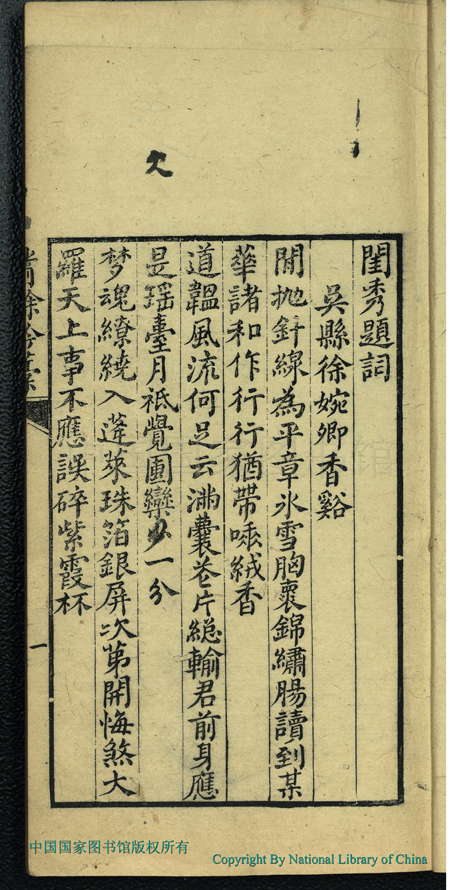 閨秀題詞
吳縣徐婉卿香谿
閒抛針線為平章氷雪胸褱錦繡腸讀到某
華諸和作行行猶帶唾絨香
道韞風流何足云滿囊花片緫輸君前身應
是瑶臺月祗覺團欒少一分
梦魂繚繞入蓬萊珠箔銀屏次第開悔煞大
羅天上事不應誤碎紫霞杯
餘
一
中国国家图书馆版权所有
Copyright By National Library of China